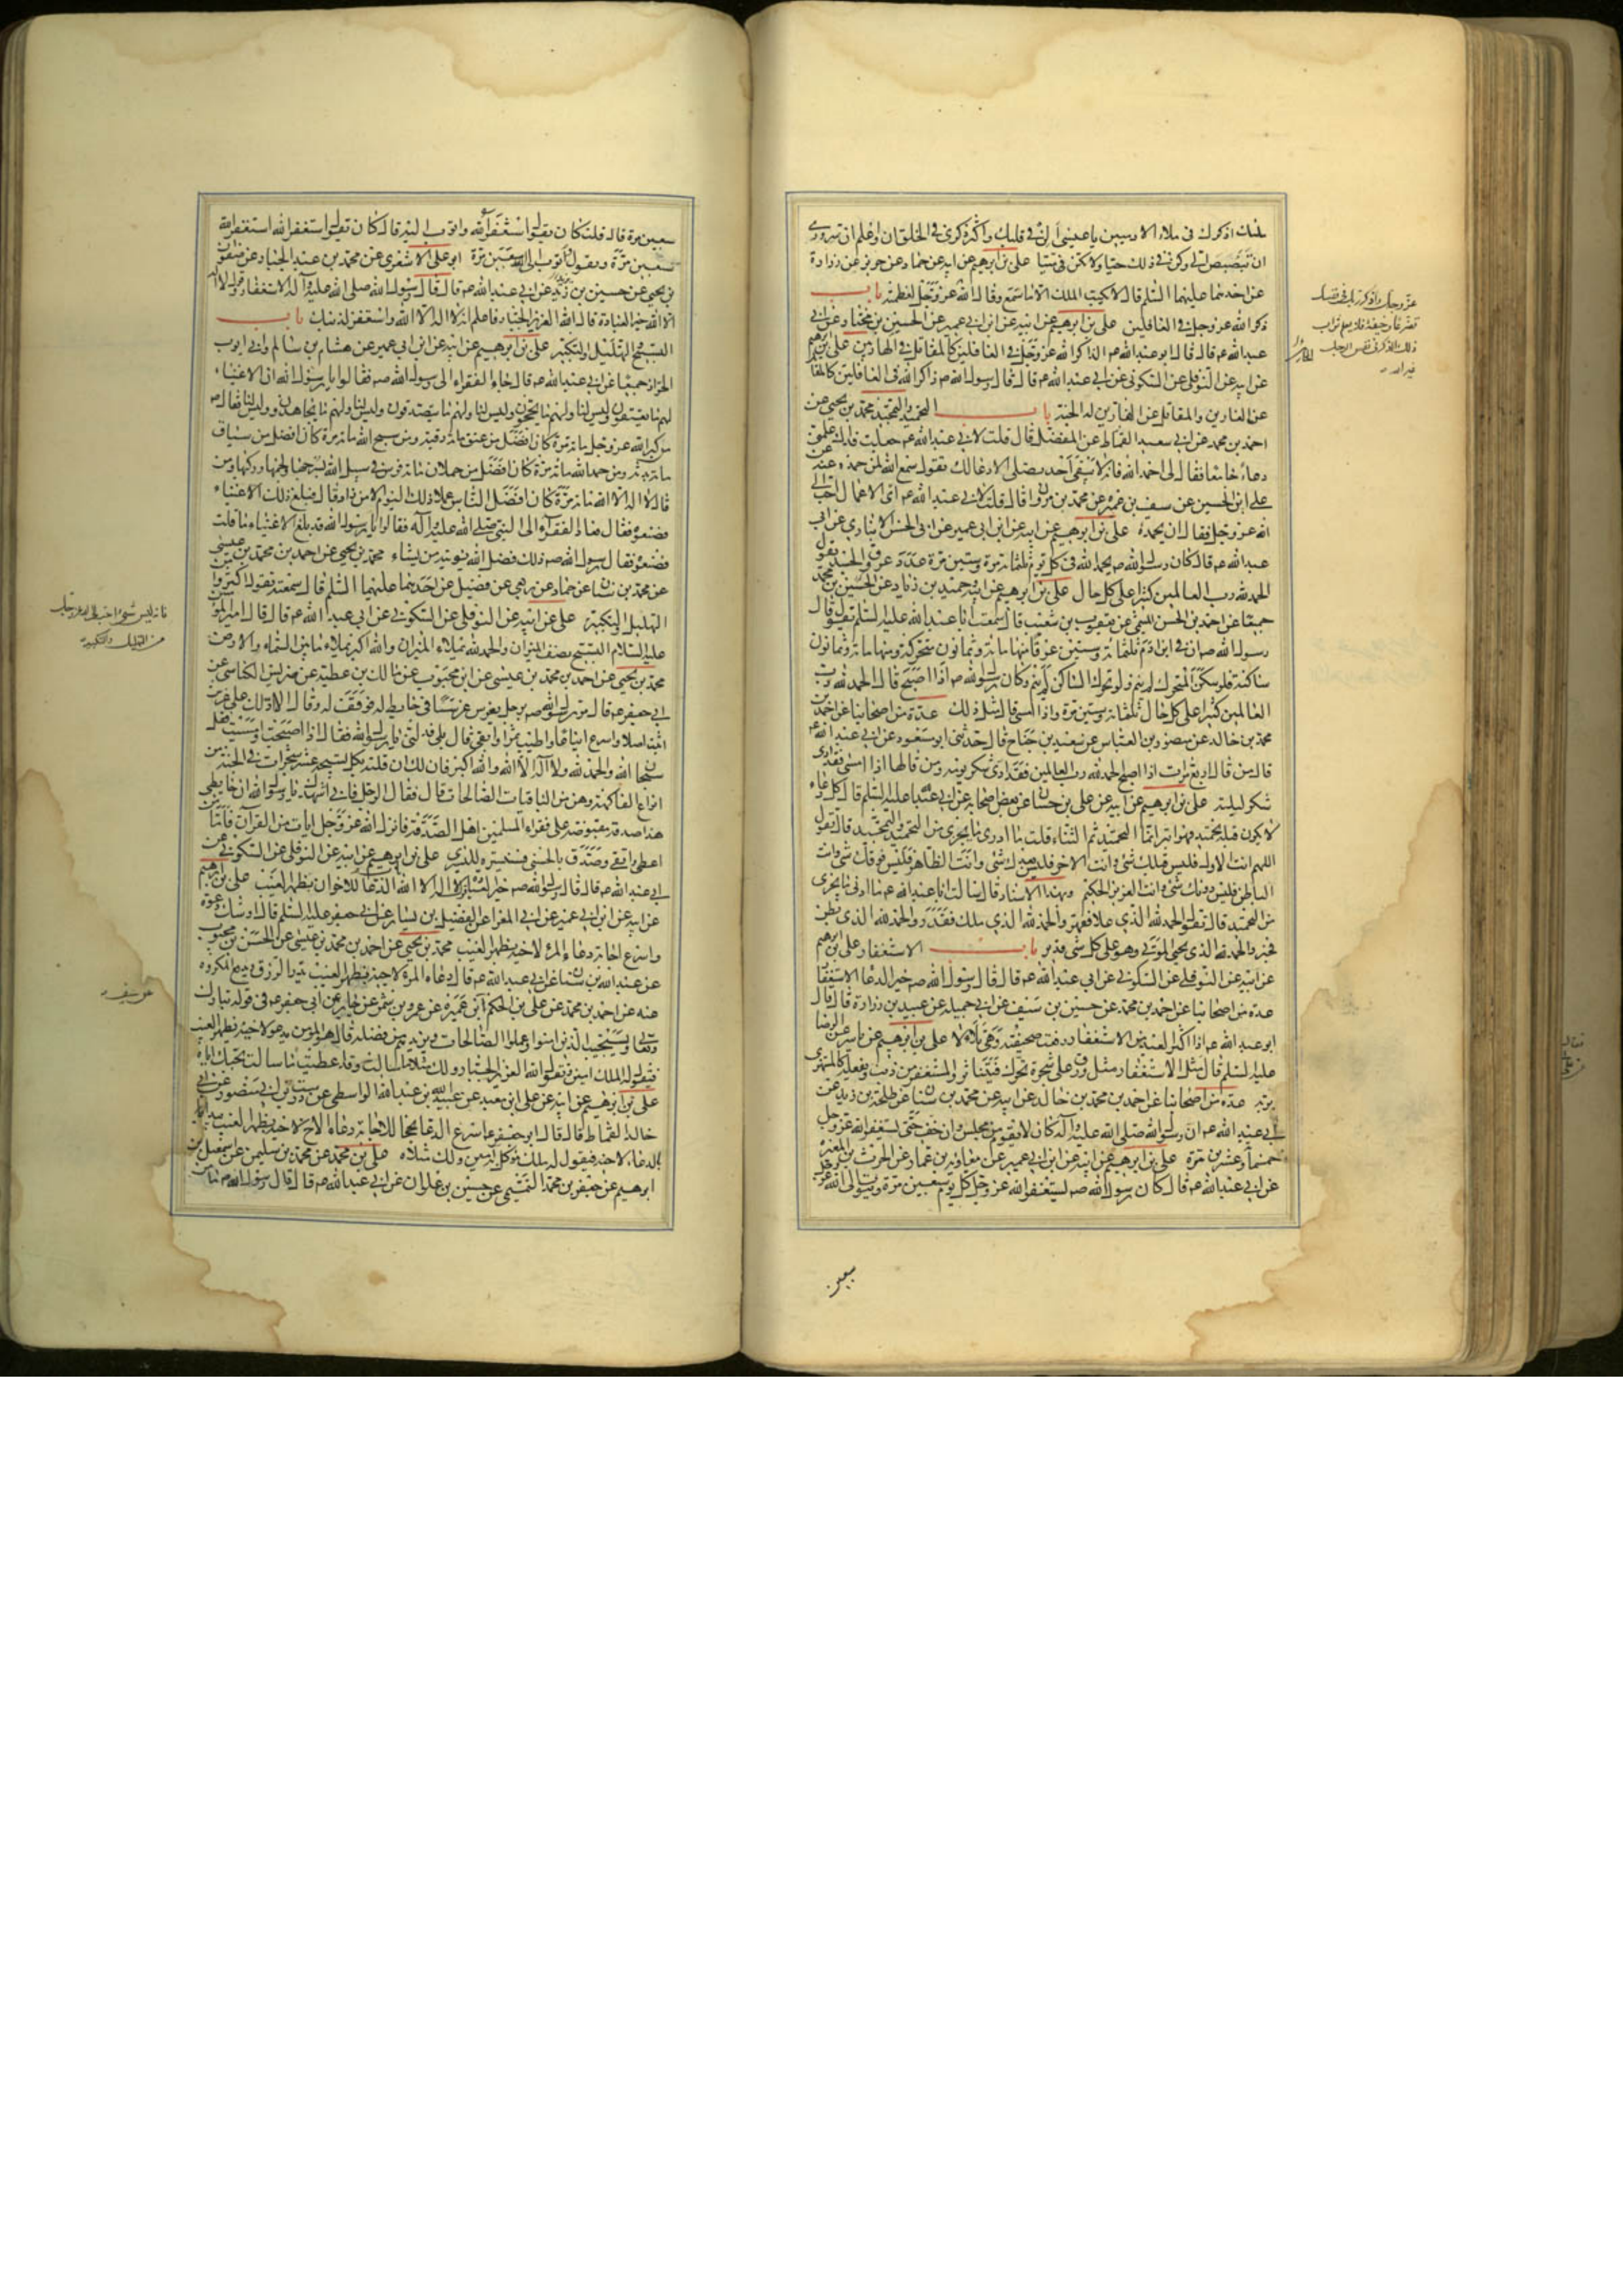 قلبك اذكرك فى ملاء الادميين يا عيسى ألن لى قلبك واكثر ذكرى فى الخلوات واعلم ان سرورى
ان تبصبص الى وكن فى ذلك حيا ولا تكن ميتا على بن ابرهيم عن ابيه عن حماد عن حريز عن زرارة
عن احدهما عليهما السلم قال لا يكتب الملك الا ما سمع وقال الله عز وجل لعظمته باب
ذكر الله عز وجل فى الغافلين على بن ابرهيم عن ابيه عن ابن ابى عمير عن الحسين بن المختار عن ابى
عبد الله ع قال قال ابو عبد الله ع الذاكر لله عز وجل فى الغافلين كالمقاتل فى الهاربين على بن ابرهيم
عن ابيه عن النوفلى عن السكونى عن ابى عبد الله ع قال قال رسول الله ص ذاكر الله فى الغافلين كالمقاتل
عن الفارين والمقاتل عن الفارين له الجنة باب التحميد والتمجيد محمد بن يحيى عن
احمد بن محمد عن ابى سعيد القماط عن المفضل قال قلت لابى عبد الله ع جعلت فداك علمنى
دعاء جامعا فقال لى احمد الله فانه لا يبقى احد يصلى الا دعا لك يقول سمع الله لمن حمده وعنه عن
على بن الحسين عن سيف بن عميرة عن محمد بن مروان قال قلت لابى عبد الله ع اى الاعمال احب الى
الله عز وجل فقال ان يحمده على بن ابرهيم عن ابيه عن ابن ابى عمير عن ابى الحسن الانبارى عن ابى
عبد الله ع قال كان رسول الله ص يحمد الله فى كل يوم ثلثمائة مرة وستين مرة عدد عروق الجسد يقول
الحمد لله رب العالمين كثيرا على كل حال على بن ابرهيم عن ابيه وحميد بن زياد عن الحسين بن محمد
جميعا عن احمد بن الحسن الميثمى عن يعقوب بن شعيب قال سمعت ابا عبد الله عليه السلم يقول قال
رسول الله ص ان فى ابن ادم ثلثمائة وستين عرقا منها مائة وثمانون متحركة ومنها مائة وثمانون
ساكنة فلو سكن المتحرك لم ينم ولو تحرك الساكن لم ينم وكان رسول الله ص اذا اصبح قال الحمد لله رب
العالمين كثيرا على كل حال ثلثمائة وستين مرة واذا امسى قال مثل ذلك عدة من اصحابنا عن احمد بن
محمد بن خالد عن منصور بن العباس عن سعيد بن جناح قال حدثنى ابو مسعود عن ابى عبد الله ع
قال من قال اربع مرات اذا اصبح الحمد لله رب العالمين فقد ادى شكر يومه ومن قالها اذا امسى فقد ادى
شكر ليلته على بن ابرهيم عن ابيه عن على بن حسان عن بعض اصحابه عن ابى عبد الله عليه السلم قال كل دعاء
لا يكون قبله تحميد فهو ابتر انما التحميد ثم الثناء قلت ما ادرى ما يجزى من التحميد والتمجيد قال تقول
اللهم انت الاول فليس قبلك شئ وانت الاخر فليس بعدك شئ وانت الظاهر فليس فوقك شئ وانت
الباطن فليس دونك شئ وانت العزيز الحكيم وبهذا الاسناد قال سالت ابا عبد الله ع ما ادنى ما يجزى
من التحميد قال تقول الحمد لله الذى علا فقهر والحمد لله الذى ملك فقدر والحمد لله الذى بطن
فخبر والحمد لله الذى يحيى الموتى وهو على كل شئ قدير باب الاستغفار على بن ابرهيم
عن ابيه عن النوفلى عن السكونى عن ابى عبد الله ع قال قال رسول الله ص خير الدعا الاستغفار
عدة من اصحابنا عن احمد بن محمد عن حسين بن سيف عن ابى جميلة عن عبيد بن زرارة قال قال
ابو عبد الله ع اذا اكثر العبد من الاستغفار رفعت صحيفته وهى تلألأ على بن ابرهيم عن ياسر عن الرضا
عليه السلم قال مثل الاستغفار مثل ورق على شجرة تحرك فيتناثر والمستغفر من ذنب ويفعله كالمستهزى
بربه عدة من اصحابنا عن احمد بن محمد بن خالد عن ابيه عن محمد بن سنان عن طلحة بن زيد عن
ابى عبد الله ع ان رسول الله صلى الله عليه وآله كان لا يقوم من مجلس وان خف حتى يستغفر الله عز وجل
خمسا وعشرين مرة على بن ابرهيم عن ابيه عن ابن ابى عمير عن معاوية بن عمار عن الحرث بن المغيرة
عن ابى عبد الله ع قال كان رسول الله ص يستغفر الله عز وجل كل يوم سبعين مرة ويتوب الى الله عز وجل
سبعين
عز وجل واذكر ربك فى نفسك
تضرعا وخيفة فلا يعلم ثواب
ذلك الذكر فى نفس الرجل
غير الله
سبعين مرة قال قلت كان يقول استغفر الله واتوب اليه قال كان يقول استغفر الله استغفر الله
سبعين مرة ويقول اتوب الى الله سبعين مرة ابو على الاشعرى عن محمد بن عبد الجبار عن صفوان
بن يحيى عن حسين بن زيد عن ابى عبد الله ع قال قال رسول الله صلى الله عليه وآله الاستغفار وقول لا اله
الا الله خير العبادة قال الله العزيز الجبار فاعلم انه لا اله الا الله واستغفر لذنبك باب
التسبيح والتهليل والتكبير على بن ابرهيم عن ابيه عن ابن ابى عمير عن هشام بن سالم وابى ايوب
الخزاز جميعا عن ابى عبد الله ع قال جاء الفقراء الى رسول الله ص فقالوا يا رسول الله ان الاغنياء
لهم ما يعتقون وليس لنا ولهم ما يحجون وليس لنا ولهم ما يتصدقون وليس لنا ولهم ما يجاهدون وليس لنا فقال ص
من كبر الله عز وجل مائة مرة كان افضل من عتق مائة رقبة ومن سبح الله مائة مرة كان افضل من سياق
مائة بدنة ومن حمد الله مائة مرة كان افضل من حملان مائة فرس فى سبيل الله بسرجها ولجمها وركبها ومن
قال لا اله الا الله مائة مرة كان افضل الناس عملا ذلك اليوم الا من زاد قال فبلغ ذلك الاغنياء
فصنعوه فقال فعاد الفقراء الى النبى صلى الله عليه وآله فقالوا يا رسول الله قد بلغ الاغنياء ما قلت
فصنعوه فقال رسول الله ص ذلك فضل الله يؤتيه من يشاء محمد بن يحيى عن احمد بن محمد بن عيسى
عن محمد بن سنان عن حماد عن ربعى عن فضيل عن احدهما عليهما السلم قال سمعته يقول اكثروا من
التهليل والتكبير على عن ابيه عن النوفلى عن السكونى عن ابى عبد الله ع قال قال امير المؤمنين
عليه السلام التسبيح نصف الميزان والحمد لله يملاء الميزان والله اكبر يملاء ما بين السماء والارض
محمد بن يحيى عن احمد بن محمد بن عيسى عن ابن محبوب عن مالك بن عطية عن ضريس الكناسى عن
ابى جعفر ع قال مر رسول الله ص برجل يغرس غرسا فى حائط له فوقف له وقال الا ادلك على غرس
اثبت اصلا واسرع ايناعا واطيب ثمرا وابقى قال بلى فدلنى يا رسول الله فقال اذا اصبحت وامسيت فقل
سبحان الله والحمد لله ولا اله الا الله والله اكبر فان لك ان قلته بكل تسبيحة عشر شجرات فى الجنة من
انواع الفاكهة وهن من الباقيات الصالحات قال فقال الرجل فانى اشهدك يا رسول الله ان حائطى
هذا صدقة مقبوضة على فقراء المسلمين اهل الصدقة فانزل الله عز وجل ايات من القرآن فاما من
اعطى واتقى وصدق بالحسنى فسنيسره لليسرى على بن ابرهيم عن ابيه عن النوفلى عن السكونى عن
ابى عبد الله ع قال قال رسول الله ص خير العبادة قول لا اله الا الله الدعاء للاخوان بظهر الغيب على بن ابرهيم
عن ابيه عن ابن ابى عمير عن ابى المغرا عن الفضيل بن يسار عن ابى جعفر عليه السلم قال اوشك دعوة
واسرع اجابة دعاء المرء لاخيه بظهر الغيب محمد بن يحيى عن احمد بن محمد بن عيسى عن الحسن بن محبوب
عن عبد الله بن سنان عن ابى عبد الله ع قال دعاء المرء لاخيه بظهر الغيب يدر الرزق ويدفع المكروه
عنه عن احمد بن محمد عن على بن الحكم عن ابن عميرة عن عمرو بن شمر عن جابر عن ابى جعفر ع فى قوله تبارك
وتعالى ويستجيب الذين امنوا وعملوا الصالحات ويزيدهم من فضله قال هو المؤمن يدعو لاخيه بظهر الغيب
فيقول له الملك امين ويقول الله العزيز الجبار ولك مثلا ما سالت وقد اعطيت ما سالت بحبك اياه
على بن ابرهيم عن ابيه عن على بن معبد عن عبيد الله بن عبد الله الواسطى عن درست بن ابى منصور عن ابى
خالد القماط قال قال ابو جعفر ع اسرع الدعا نجحا للاجابة دعاء الاخ لاخيه بظهر الغيب يبدأ
بالدعاء لاخيه فيقول له ملك موكل به امين ولك مثلاه على بن محمد عن محمد بن سليمن عن اسمعيل بن
ابرهيم عن جعفر بن محمد التميمى عن حسين بن علوان عن ابى عبد الله ع قال قال رسول الله ص ما من
فانه ليس شئ احب الى الله عز وجل
من التهليل والتكبير
عن سيف